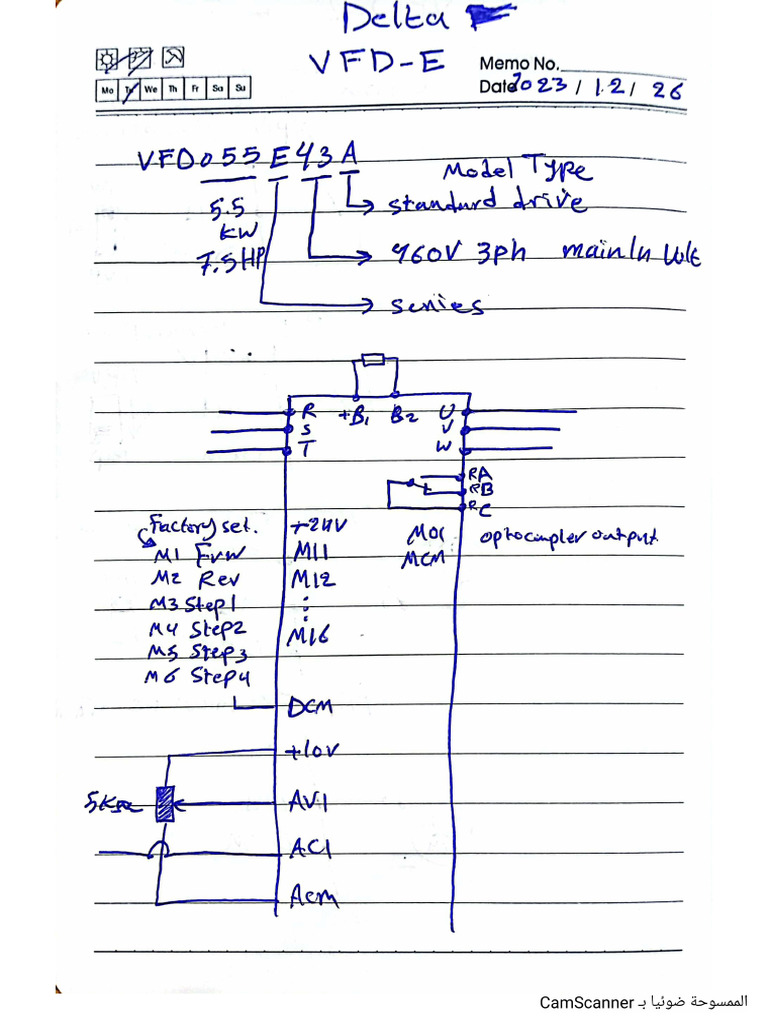 Delta
VFD-E
Memo No.
Mo Tu We Th Fr Sa Su
Date 2023 / 12 / 26
VFD055E43A
Model Type
5.5
KW
7.5HP
standard drive
460V 3ph mainIn Volt
series
R +B1 B2 U
S V
T W
RA
RB
RC
Factory set. +24V
MO1 optocoupler output
M1 Frw MI1
MCM
M2 Rev MI2
M3 Step1
M4 Step2 MI6
M5 Step3
M6 Step4
DCM
+10V
5KΩ AV1
AC1
Acm
الممسوحة ضوئيا بـ CamScanner